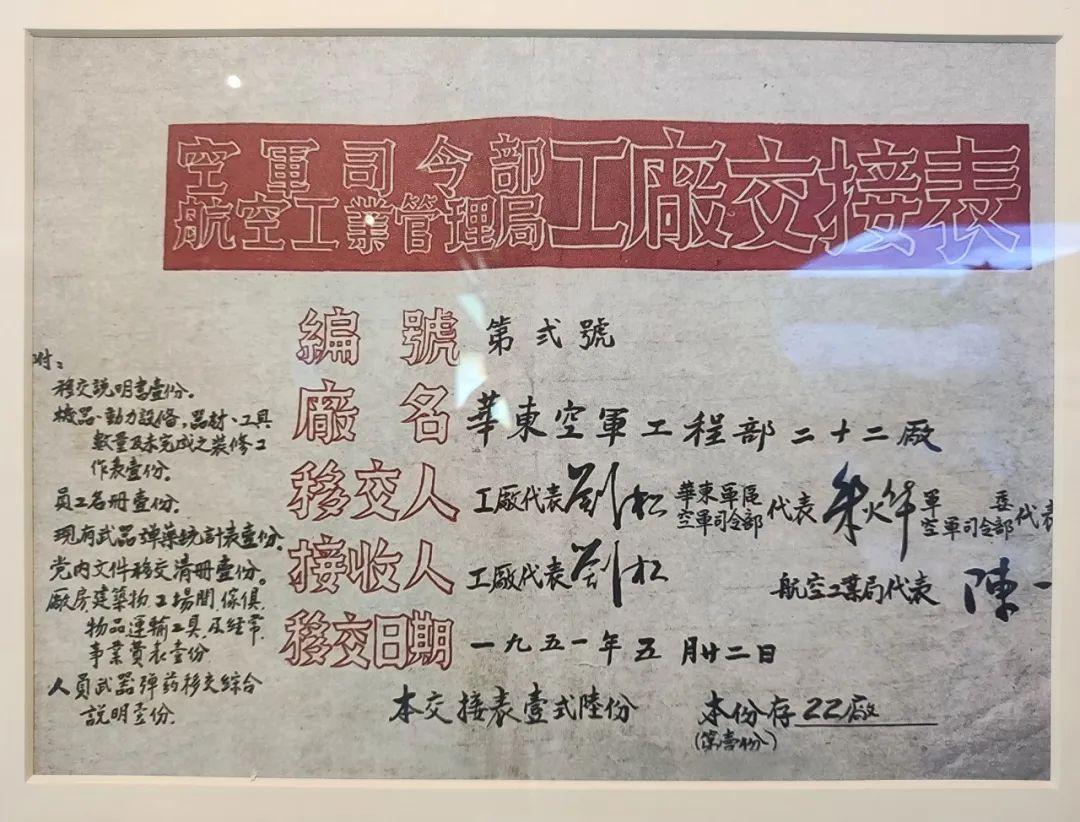 空軍司令部
航空工業管理局
工廠交接表
編號 第弍號
廠名 華東空軍工程部二十二廠
移交人 工廠代表劉松 華東軍區空軍司令部代表 軍委空軍司令部代表
接收人 工廠代表劉松 航空工業局代表 陳一
移交日期 一九五一年五月廿二日
本交接表壹式陸份 本份存22廠
(第壹份)
附：
移交說明書壹份。
機器、動力設備,器材、工具
數量及未完成之裝修工
作表壹份。
員工名冊壹份。
現有武器彈藥統計表壹份。
党內文件移交清冊壹份。
廠房建築物,工場間,傢俱,
物品運輸工具,及經常
事業費表壹份
人員武器弹药移交綜合
說明壹份.